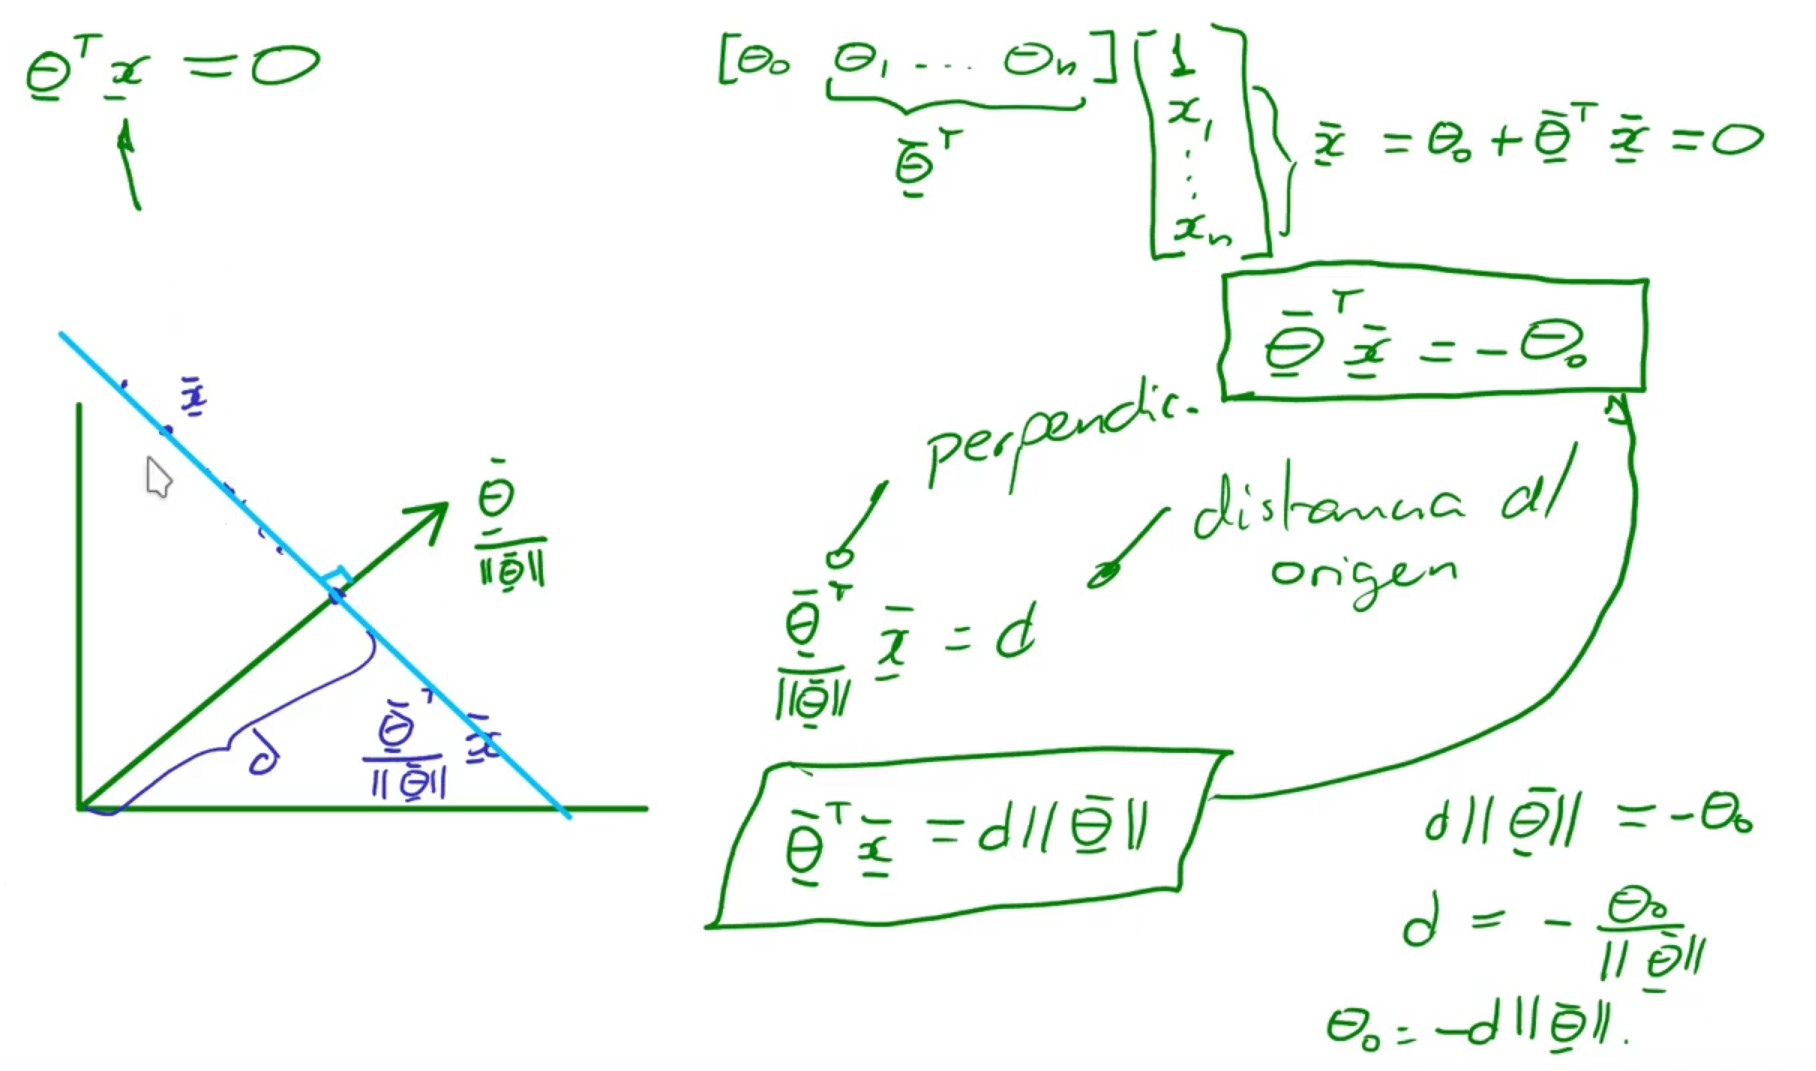 θ̲ᵀ x̲ = 0
[θ₀ θ₁ ... θₙ] [1 x₁ ⋮ xₙ] } x̲̄ = θ₀ + θ̲̄ᵀ x̲̄ = 0
θ̲̄ᵀ
θ̲̄ᵀ x̲̄ = -θ₀
x̲̄
perpendic.
θ̲̄ / ||θ̲̄||
distancia al
origen
θ̲̄ᵀ / ||θ̲̄|| x̲̄ = d
d
θ̲̄ᵀ / ||θ̲̄|| x̲̄
θ̲̄ᵀ x̲̄ = d||θ̲̄||
d||θ̲̄|| = -θ₀
d = - θ₀ / ||θ̲̄||
θ₀ = -d||θ̲̄||.